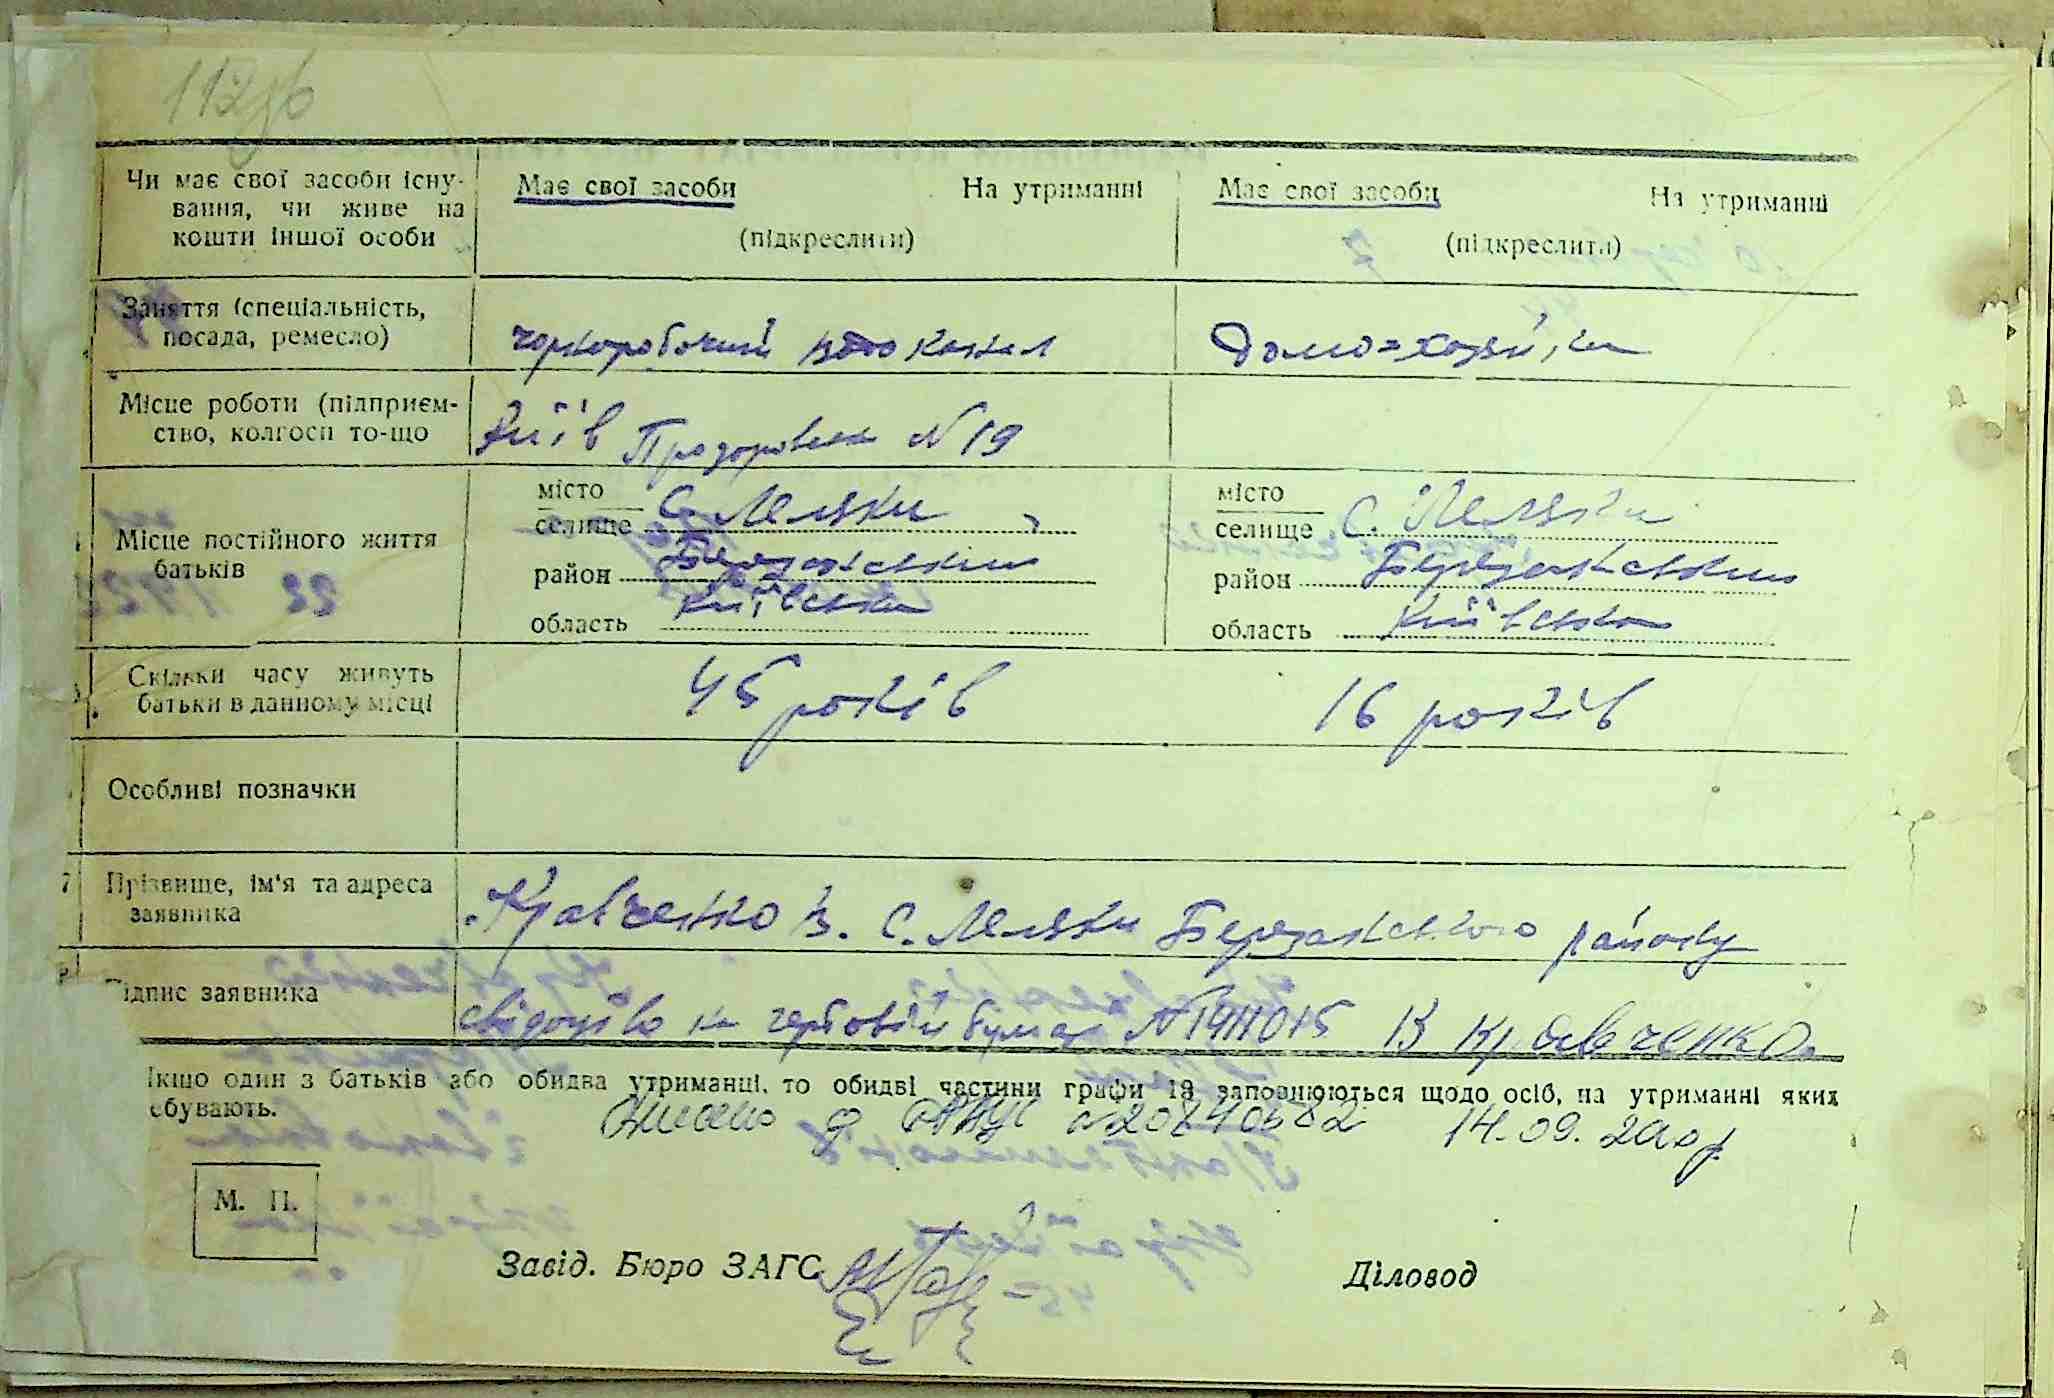 112зв
Чи має свої засоби існу-
вання, чи живе на
кошти іншої особи
Має свої засоби На утриманні
(підкреслити)
Має свої засоби На утриманні
(підкреслити)
Заняття (спеціальність,
посада, ремесло)
чорноробочий
Домо=хазяйка
Місце роботи (підприєм-
ство, колгосп то-що
Київ N 19
Місце постійного життя
батьків
місто
селище С. Лемяки
район Березанський
область Київська
місто
селище С. Лемяки
район Березанський
область Київська
Скільки часу живуть
батьки в данному місці
45 років
16 років
Особливі позначки
7 Прізвище, ім'я та адреса
заявника
Кравченко В. С. Лемяки Березанського району
Підпис заявника
свідоцтво на гербовій бумазі N 1911015 В Кравченко
Якщо один з батьків або обидва утриманці, то обидві частини графи 19 заповнюються щодо осіб, на утриманні яких
ебувають.
14.09.
М. П.
Завід. Бюро ЗАГС
Діловод